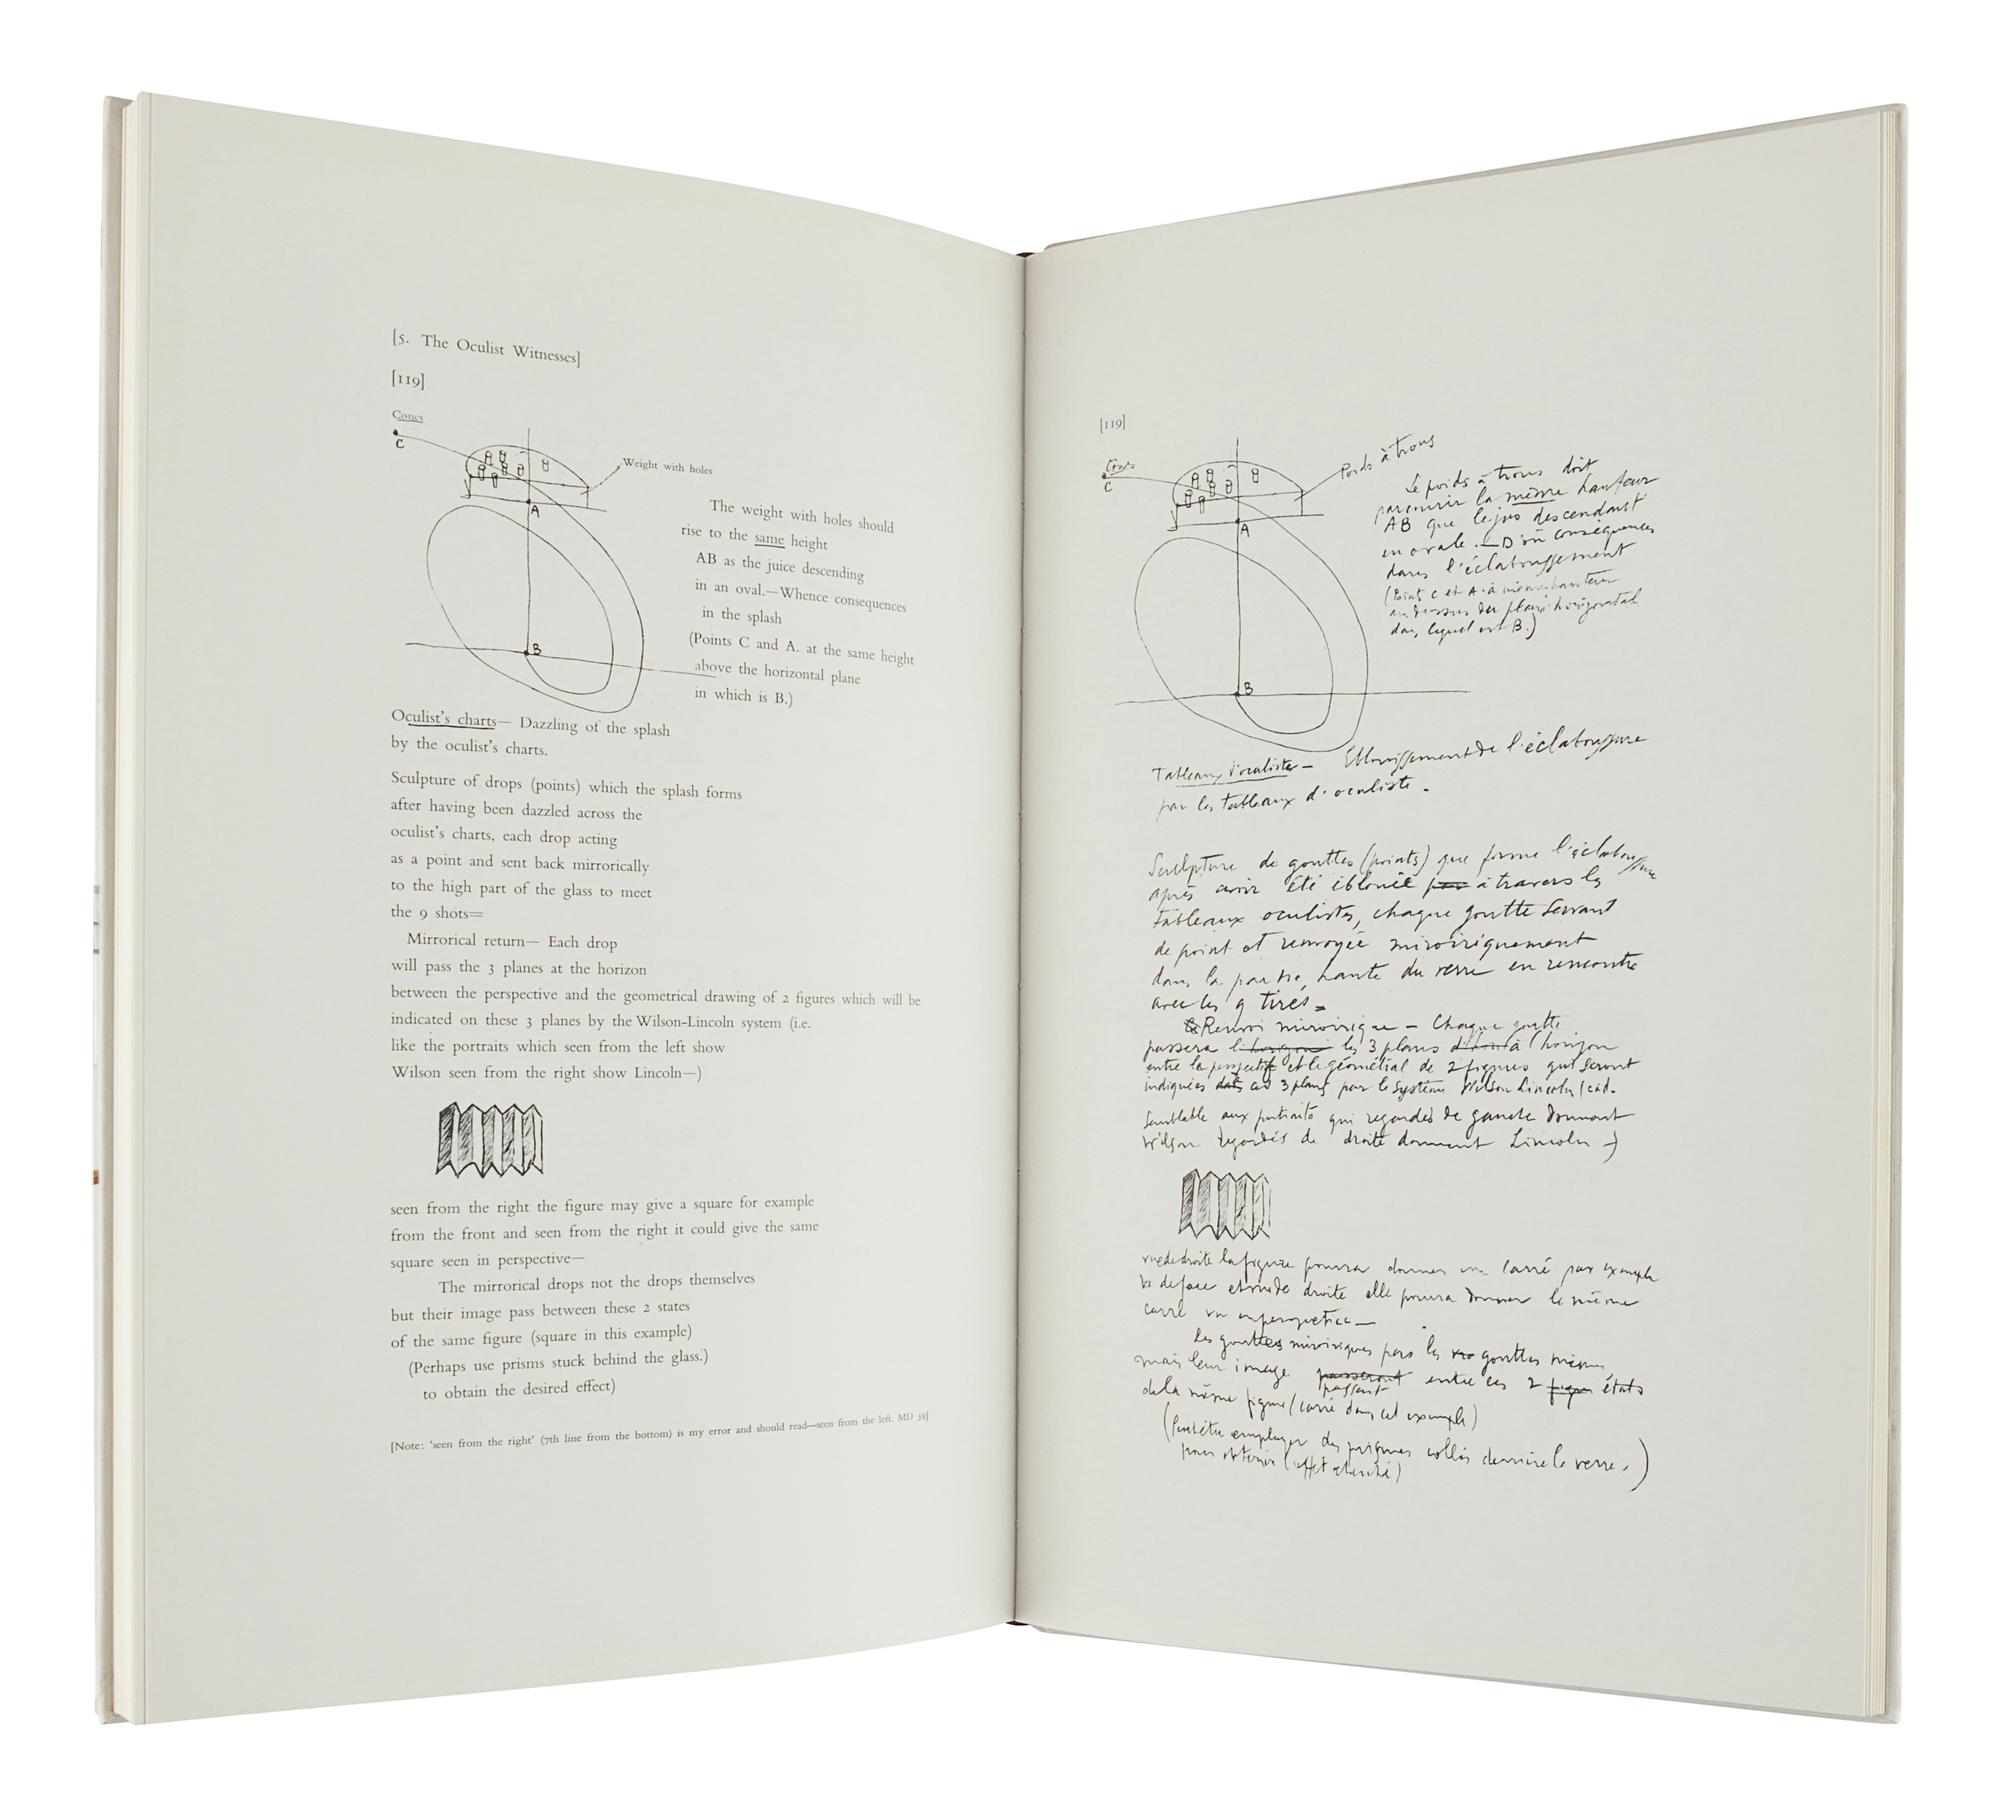 [5. The Oculist Witnesses]
[119]
Cones
C
Weight with holes
A
The weight with holes should
rise to the same height
AB as the juice descending
in an oval.—Whence consequences
in the splash
(Points C and A. at the same height
above the horizontal plane
in which is B.)
B
Oculist's charts— Dazzling of the splash
by the oculist's charts.
Sculpture of drops (points) which the splash forms
after having been dazzled across the
oculist's charts, each drop acting
as a point and sent back mirrorically
to the high part of the glass to meet
the 9 shots=
Mirrorical return— Each drop
will pass the 3 planes at the horizon
between the perspective and the geometrical drawing of 2 figures which will be
indicated on these 3 planes by the Wilson-Lincoln system (i.e.
like the portraits which seen from the left show
Wilson seen from the right show Lincoln—)
seen from the right the figure may give a square for example
from the front and seen from the right it could give the same
square seen in perspective—
The mirrorical drops not the drops themselves
but their image pass between these 2 states
of the same figure (square in this example)
(Perhaps use prisms stuck behind the glass.)
to obtain the desired effect)
[Note: 'seen from the right' (7th line from the bottom) is my error and should read—seen from the left. MD 59]
[119]
Cônes
C
Poids à trous
A
Le poids à trous doit
parcourir la même hauteur
AB que le jus descendant
en ovale.—D'où conséquences
dans l'éclaboussement
(Points C et A à même hauteur
au dessus du plan horizontal
dans lequel est B.)
B
Tableaux d'oculiste— Éblouissement de l'éclaboussure
par les tableaux d'oculiste.
Sculpture de gouttes (points) que forme l'éclaboussure
après avoir été éblouie par à travers les
tableaux oculistes, chaque goutte servant
de point et renvoyée miroiriquement
dans la partie haute du verre en rencontre
avec les 9 tirés=
Renvoi miroirique— Chaque goutte
passera l'horizon les 3 plans à l'horizon
entre le perspectif et le géométral de 2 figures qui seront
indiquées dans ces 3 plans par le système Wilson Lincoln (càd.
semblable aux portraits qui regardés de gauche donnent
Wilson regardés de droite donnent Lincoln —)
vue de droite la figure pourra donner un carré par exemple
de face et vue de droite elle pourra donner le même
carré vu en perspective—
Les gouttes miroiriques pas les gouttes mêmes
mais leur image passeront passent entre ces 2 figu états
de la même figure (carré dans cet exemple)
(Peut être employer des prismes collés derrière le verre.)
pour obtenir l'effet cherché)